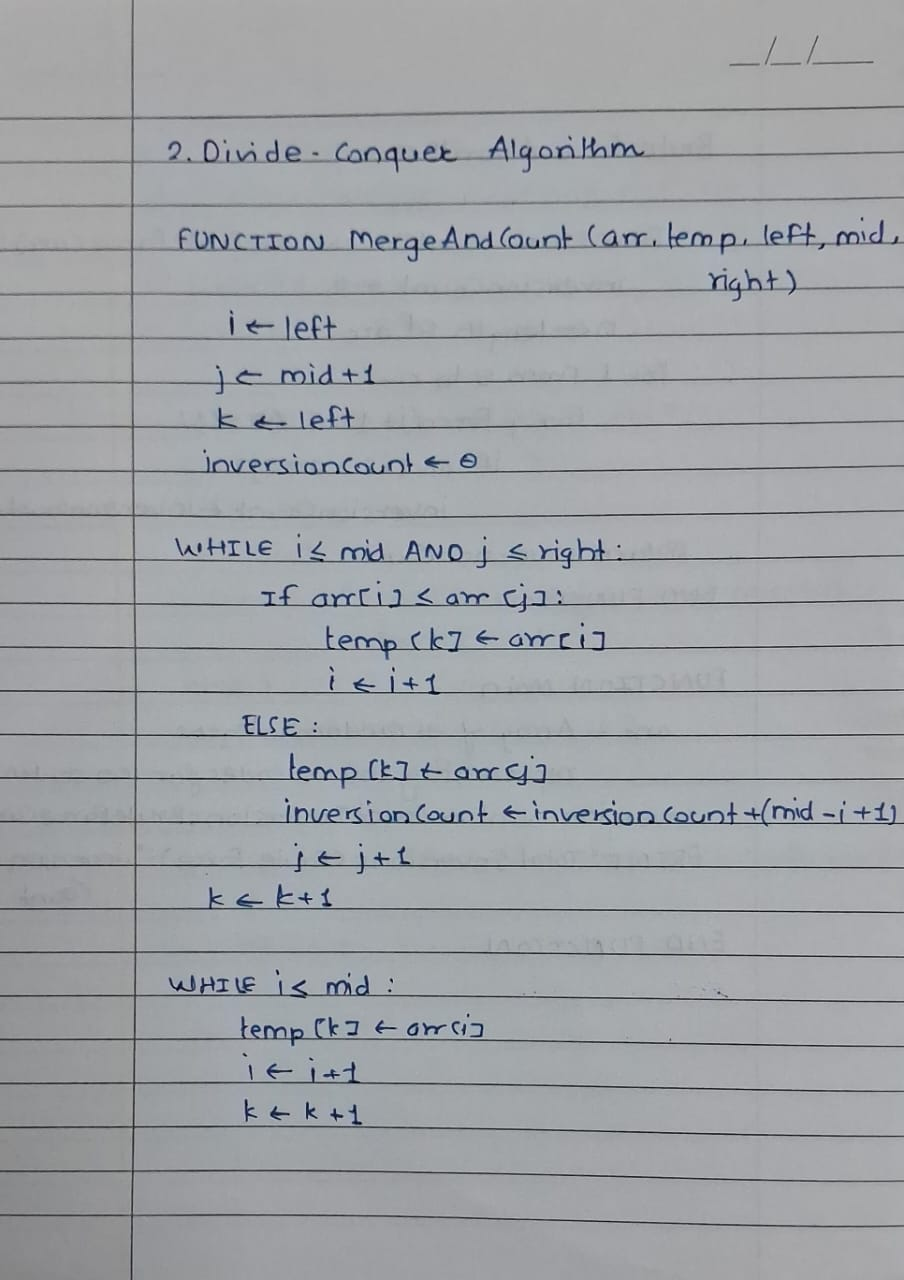 _/_/__
2. Divide - Conquer Algorithm
FUNCTION MergeAndCount (arr, temp, left, mid,
right)
i ← left
j ← mid+1
k ← left
inversioncount ← 0
WHILE i ≤ mid AND j ≤ right:
If arr[i] ≤ arr[j]:
temp[k] ← arr[i]
i ← i+1
ELSE:
temp[k] ← arr[j]
inversionCount ← inversionCount+(mid-i+1)
j ← j+1
k ← k+1
WHILE i ≤ mid:
temp[k] ← arr[i]
i ← i+1
k ← k+1